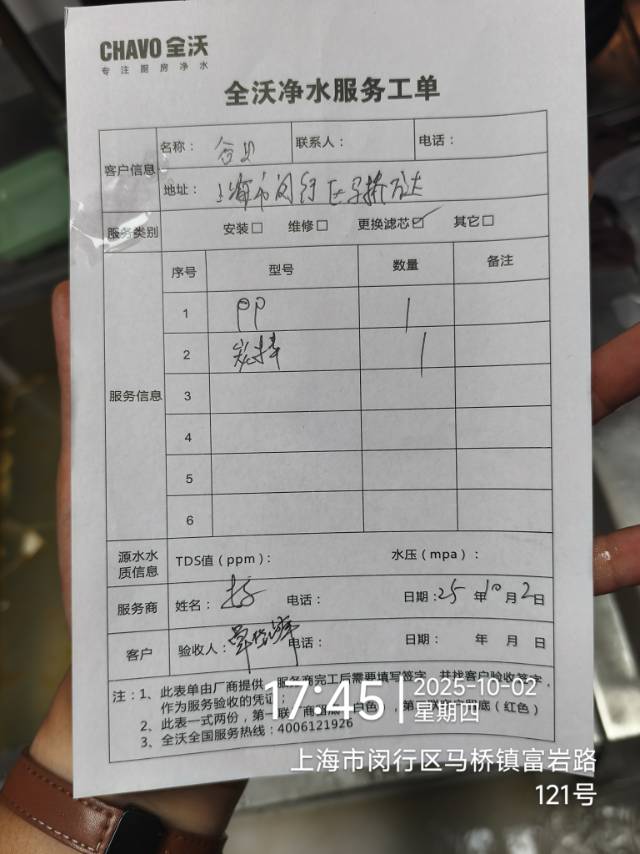 CHAVO 全沃
专注厨房净水
全沃净水服务工单
客户信息
名称：
联系人：
电话：
地址：上海市闵行区马桥万达
服务类别
安装□ 维修□ 更换滤芯☑ 其它□
服务信息
序号 型号 数量 备注
1 PP 1
2 炭棒 1
3
4
5
6
源水水质信息
TDS值（ppm）： 水压（mpa）：
服务商
姓名： 电话： 日期：25年10月2日
客户
验收人： 电话： 日期： 年 月 日
注：1、此表单由厂商提供，服务商完工后需要填写签字，并找客户验收签字，
作为服务验收的凭证；
2、此表一式两份，第一联（白色），第二底（红色）
3、全沃全国服务热线：4006121926
17:45
2025-10-02
星期四
上海市闵行区马桥镇富岩路
121号